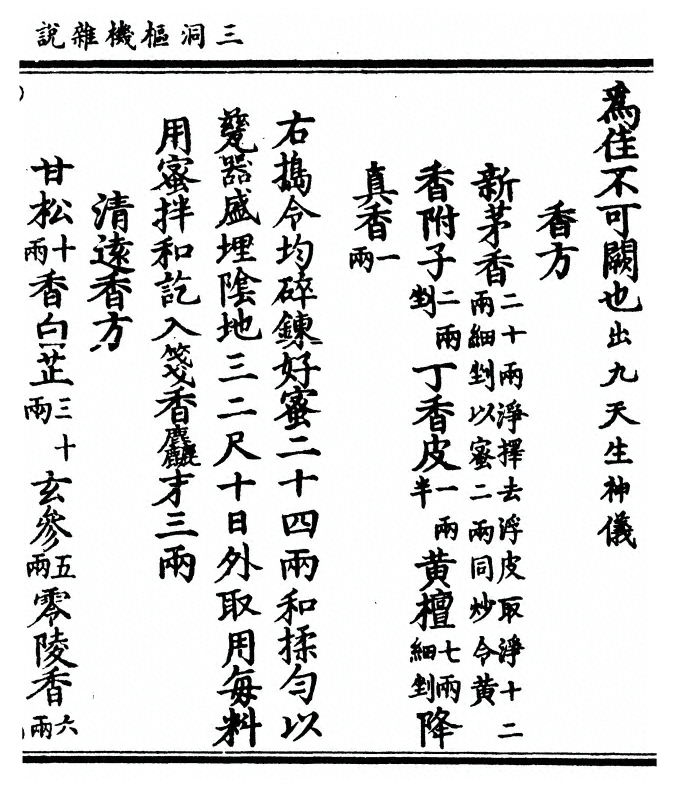 三洞樞機雜說
為佳不可闕也出九天生神儀
香方
新茅香二十兩淨擇去浮皮取淨十二兩細剉以蜜二兩同炒令黃
香附子二兩剉丁香皮一兩半黃檀七兩細剉降
真香一兩
右搗令均碎鍊好蜜二十四兩和揉勻以
甆器盛埋陰地三二尺十日外取用每料
用蜜拌和訖入箋香麤才三兩
清遠香方
甘松十兩香白芷三十兩玄參五兩零陵香六兩